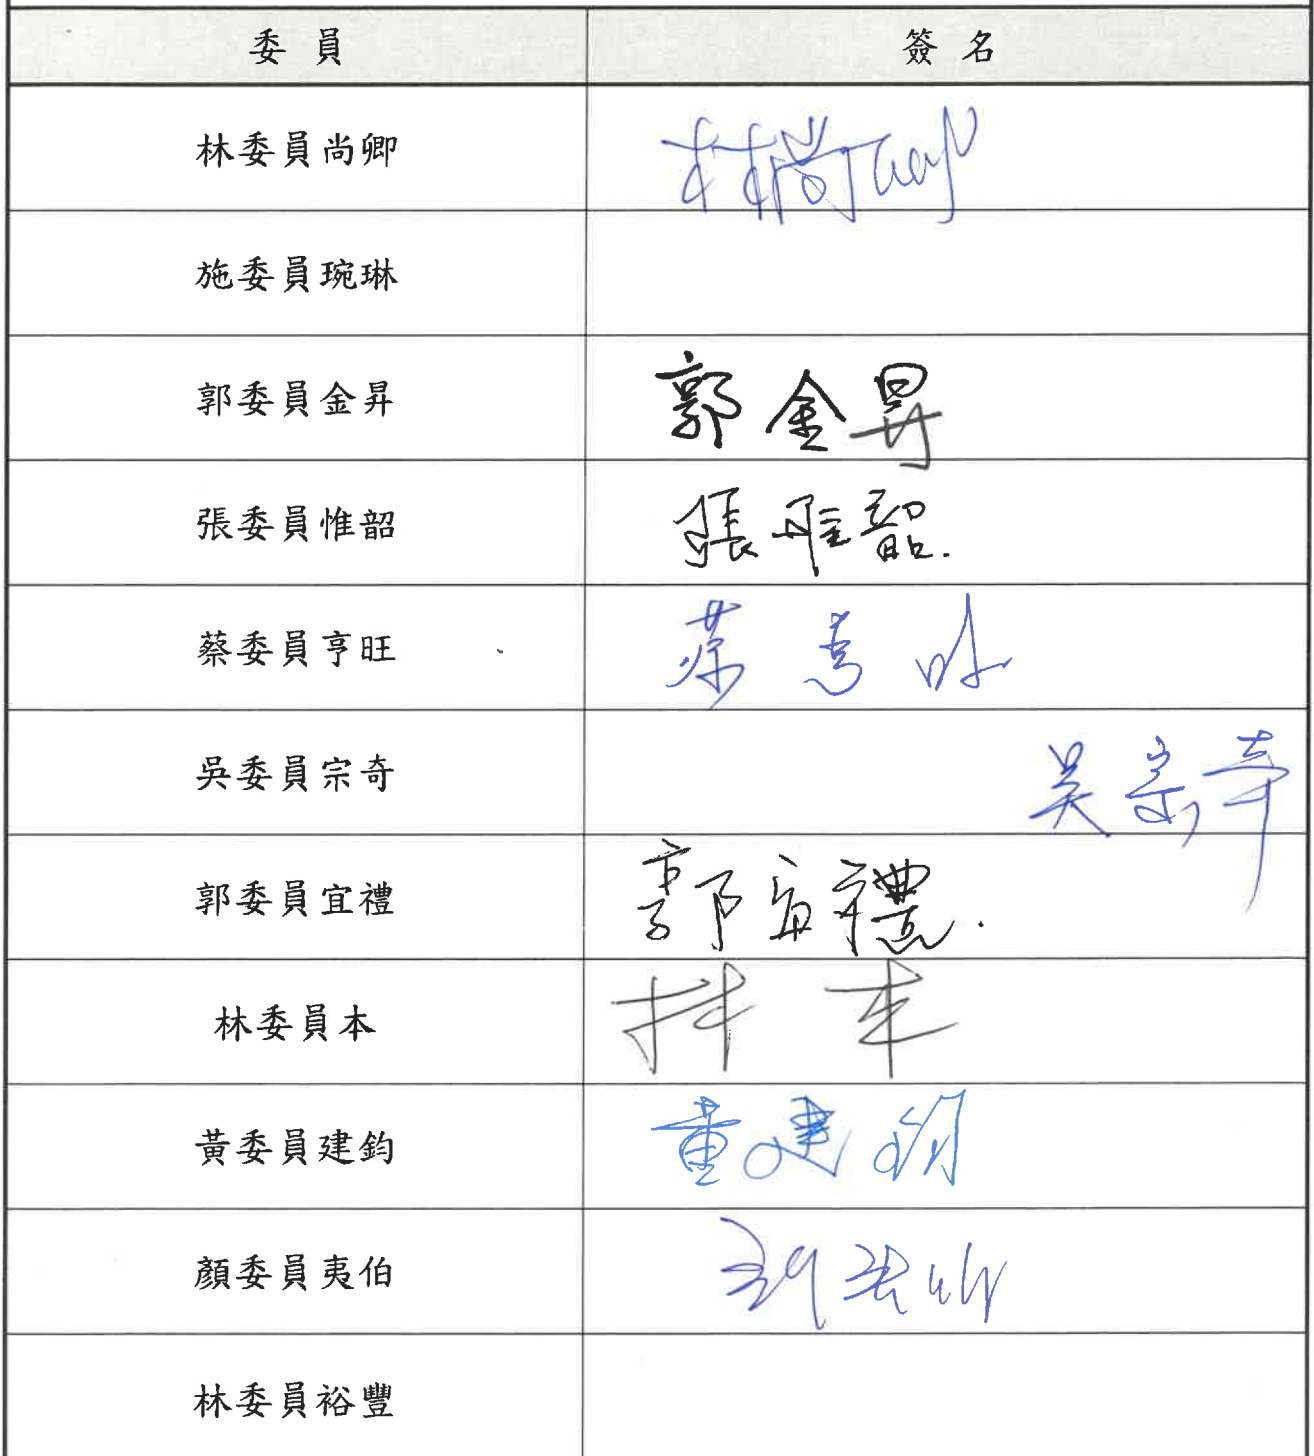 委員 簽名
林委員尚卿 林尚
施委員琬琳
郭委員金昇 郭金昇
張委員惟韶 張惟韶.
蔡委員亨旺 蔡
吳委員宗奇 吳宗奇
郭委員宜禮 郭宜禮.
林委員本 林本
黃委員建鈞 黃建鈞
顏委員夷伯
林委員裕豐